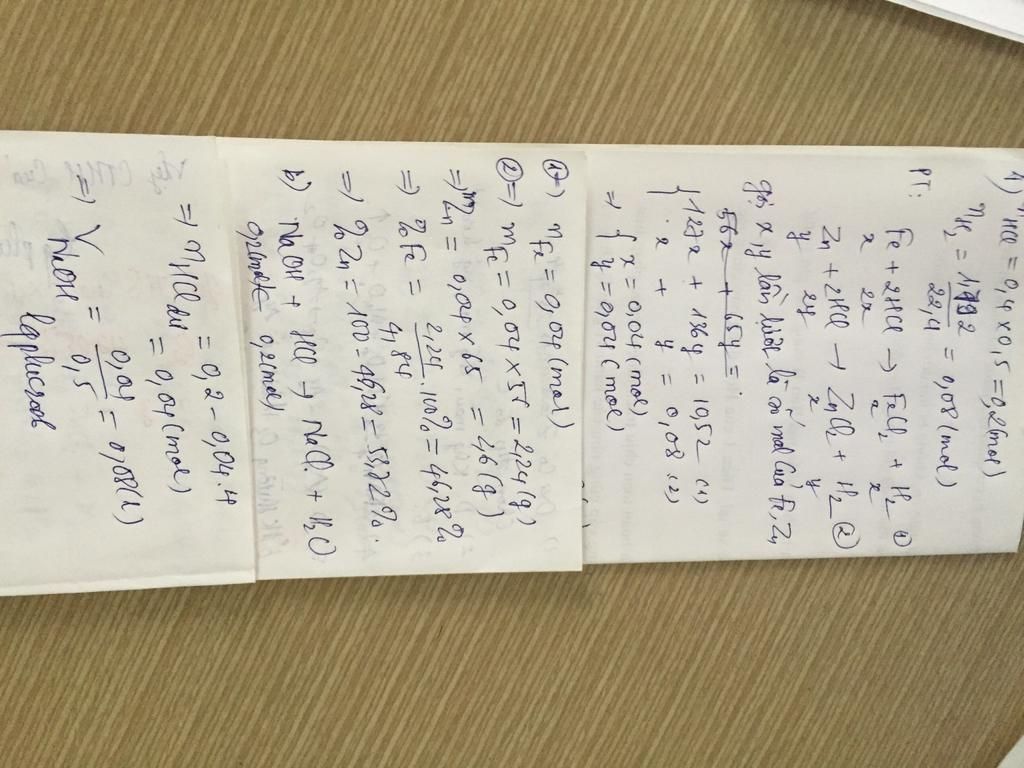 1) nHCl = 0,4 x 0,5 = 0,2 (mol)
nH2 = 1,792/22,4 = 0,08 (mol)
PT:
Fe + 2HCl → FeCl2 + H2 (1)
x 2x x x
Zn + 2HCl → ZnCl2 + H2 (2)
y 2y y y
gọi x, y lần lượt là số mol của Fe, Zn
56x + 65y =
{ 127x + 136y = 10,52 (1)
x + y = 0,08 (2)
⇒ { x = 0,04 (mol)
y = 0,04 (mol)
(1) ⇒ nFe = 0,04 (mol)
(2) ⇒ mFe = 0,04 x 55 = 2,24 (g)
⇒ mZn = 0,04 x 65 = 2,6 (g)
⇒ %Fe = 2,24/4,84 . 100% = 46,28%
⇒ %Zn = 100 - 46,28 = 53,72%.
b) NaOH + HCl → NaCl + H2O
0,2mol ← 0,2(mol)
⇒ nHCl dư = 0,2 - 0,04.4
= 0,04 (mol)
⇒ VNaOH = 0,04/0,5 = 0,08 (l)